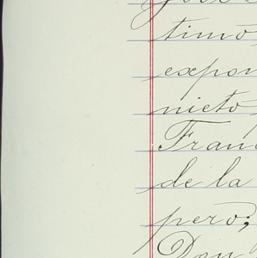 timó
expon
nieto
Fran
de la
pero;
Don